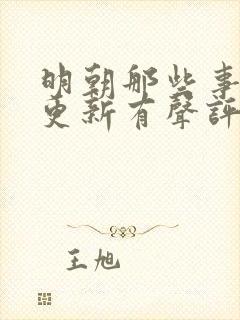 明朝那些事
更新有聲評
王旭